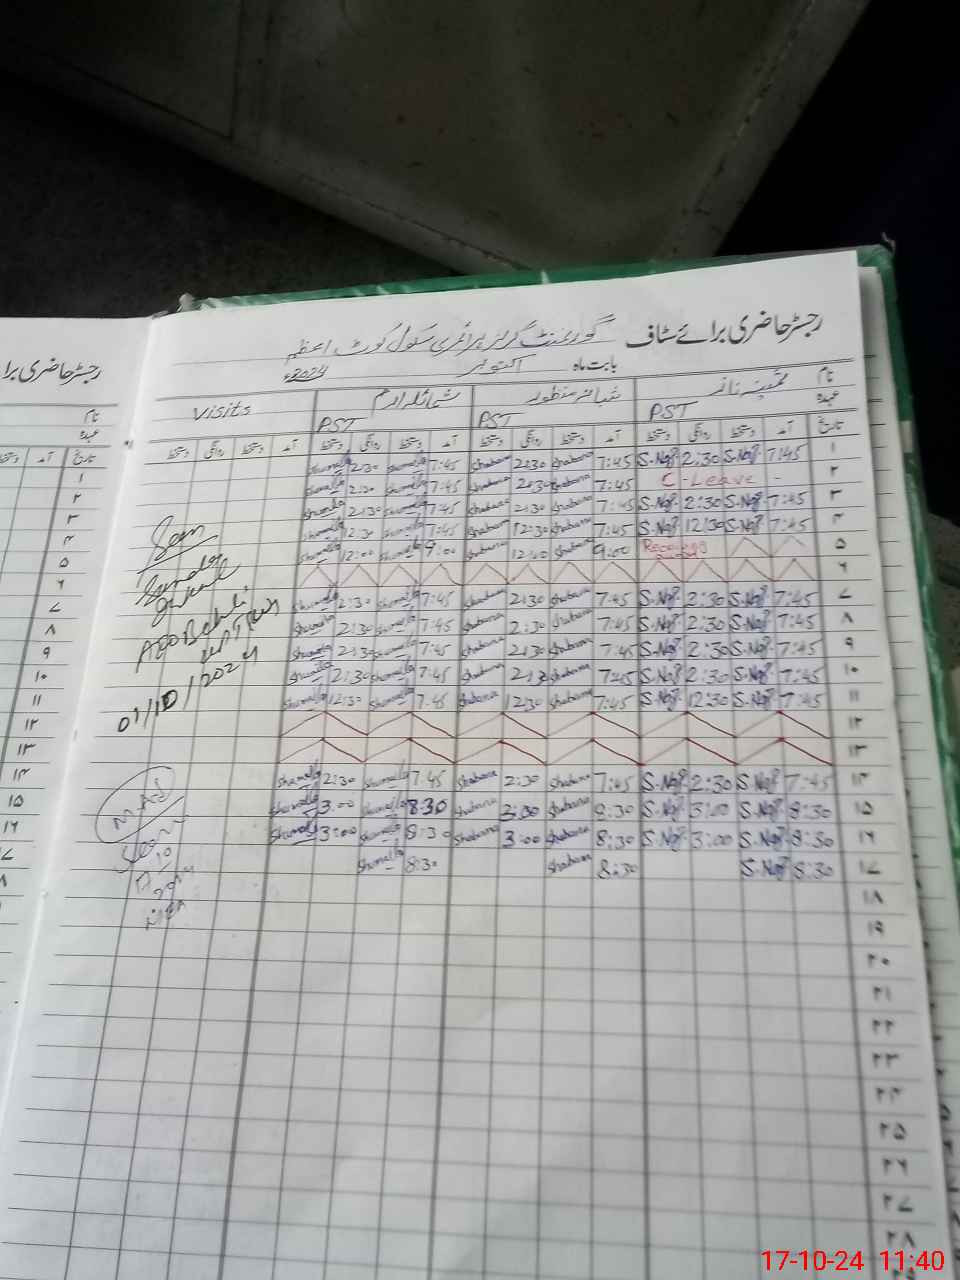 رجسٹر حاضری برائے سٹاف گورنمنٹ گرلز پرائمری سکول کوٹ اعظم
بابت ماہ اکتوبر 2024ء
نام شبانہ منظور Visits
عہدہ PST PST PST
تاریخ آمد دستخط روانگی دستخط آمد دستخط روانگی دستخط آمد دستخط روانگی دستخط آمد دستخط روانگی دستخط
۱ 7:45 S.Naz 2:30 S.Naz 7:45 Shabana 2:30 Shabana 7:45 Shumaila 2:30 Shumaila
۲ C-Leave - 7:45 Shabana 2:30 Shabana 7:45 Shumaila 2:30 Shumaila
۳ 7:45 S.Naz 2:30 S.Naz 7:45 Shabana 2:30 Shabana 7:45 Shumaila 2:30 Shumaila
۴ 7:45 S.Naz 12:30 S.Naz 7:45 Shabana 12:30 Shabana 7:45 Shumaila 12:30 Shumaila
۵ 9:00 Shabana 12:00 Shabana 9:00 Shumaila 12:00 Shumaila
۶
۷ 7:45 S.Naz 2:30 S.Naz 7:45 Shabana 2:30 Shabana 7:45 Shumaila 2:30 Shumaila
۸ 7:45 S.Naz 2:30 S.Naz 7:45 Shabana 2:30 Shabana 7:45 Shumaila 2:30 Shumaila
۹ 7:45 S.Naz 2:30 S.Naz 7:45 Shabana 2:30 Shabana 7:45 Shumaila 2:30 Shumaila
۱۰ 7:45 S.Naz 2:30 S.Naz 7:45 Shabana 2:30 Shabana 7:45 Shumaila 2:30 Shumaila
۱۱ 7:45 S.Naz 12:30 S.Naz 7:45 Shabana 12:30 Shabana 7:45 Shumaila 12:30 Shumaila
۱۲
۱۳
۱۴ 7:45 S.Naz 2:30 S.Naz 7:45 Shabana 2:30 Shabana 7:45 Shumaila 2:30 Shumaila
۱۵ 8:30 S.Naz 3:00 S.Naz 8:30 Shabana 3:00 Shabana 8:30 Shumaila 3:00 Shumaila
۱۶ 8:30 S.Naz 3:00 S.Naz 8:30 Shabana 3:00 Shabana 8:30 Shumaila 3:00 Shumaila
۱۷ 8:30 S.Naz 8:30 Shabana 8:30 Shumaila
۱۸
۱۹
۲۰
۲۱
۲۲
۲۳
۲۴
۲۵
۲۶
۲۷
۲۸
01/10/2024
رجسٹر حاضری
نام
عہدہ
تاریخ آمد
۱
۲
۳
۴
۵
۶
۷
۸
۹
۱۰
۱۱
۱۲
۱۳
۱۴
۱۵
۱۶
17-10-24 11:40